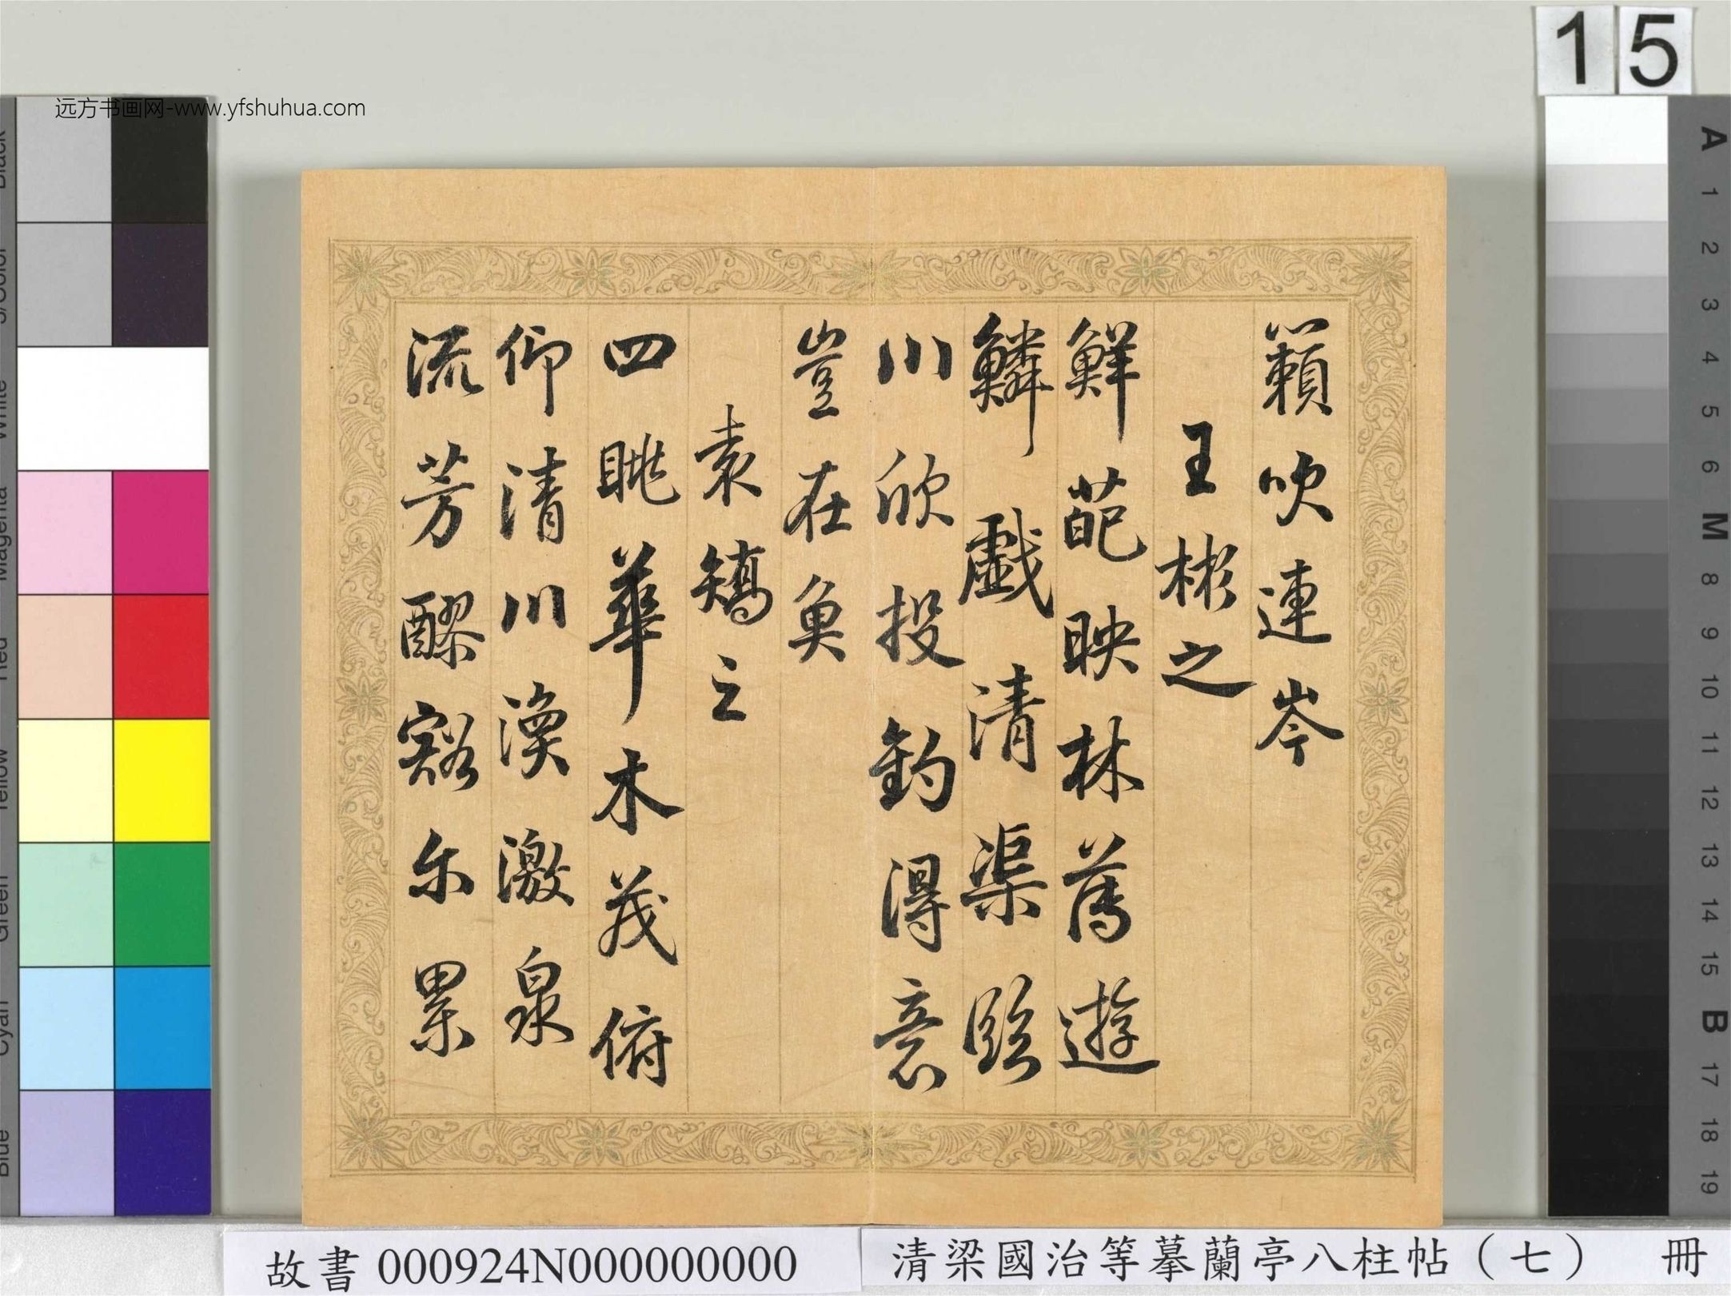 15
远方书画网-www.yfshuhua.com
籟吹連岑
王彬之
鮮葩映林薄遊
鱗戲清渠臨
川欣投釣得意
豈在魚
袁矯之
四眺華木茂俯
仰清川渙激泉
流芳醪豁尔累
故書 000924N000000000
清梁國治等摹蘭亭八柱帖（七） 冊
A
1
2
3
4
5
6
M
8
9
10
11
12
13
14
15
B
17
18
19
Black
3/Color
White
Magenta
Red
Yellow
Green
Cyan
Blue